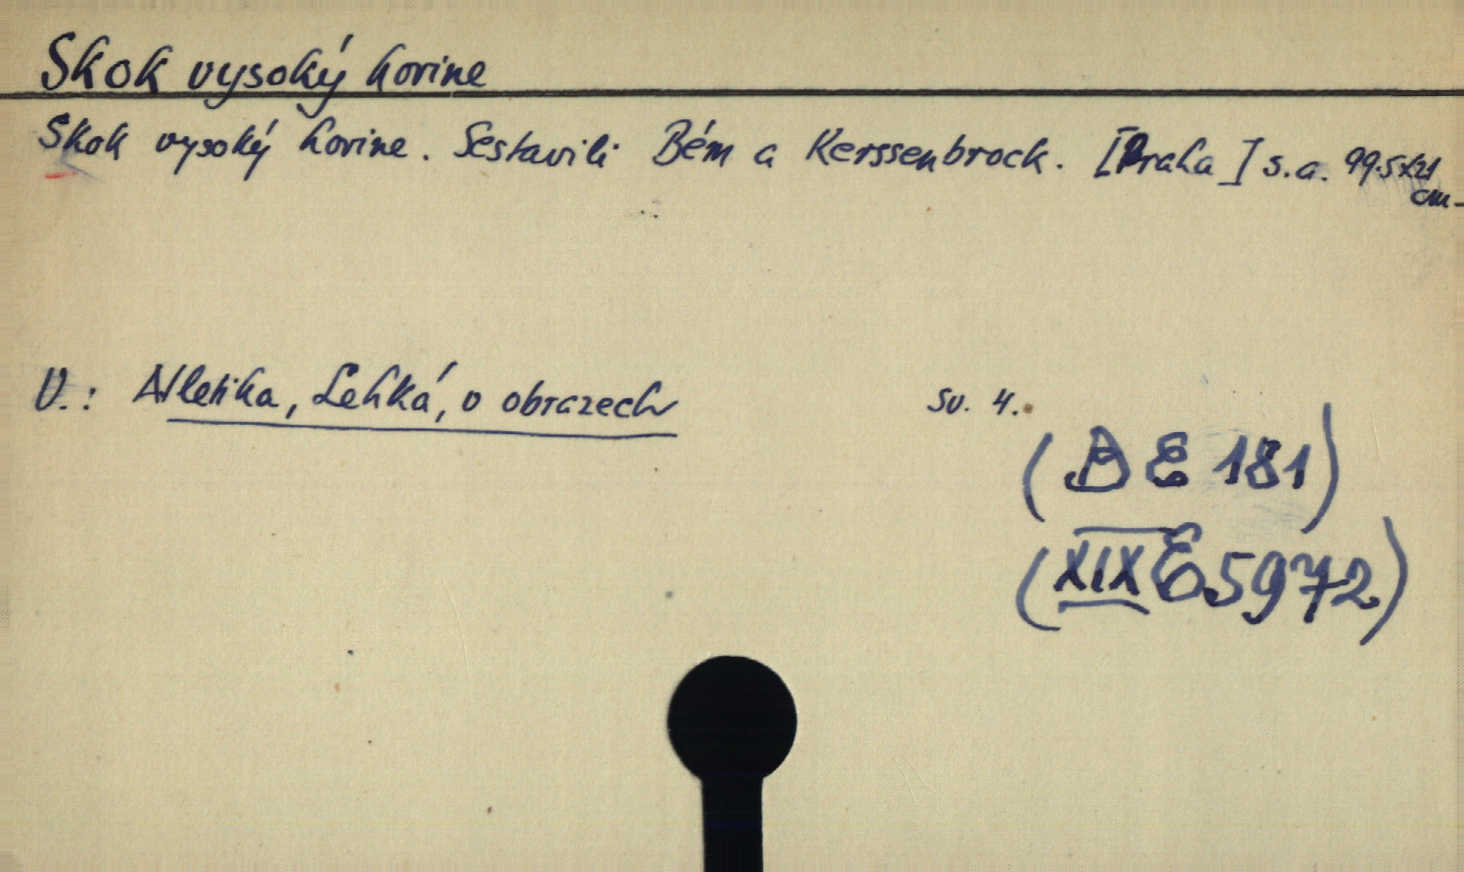 Skok vysoký horine
Skok vysoký horine. Sestavili Bém a Kerssenbrock. [Praha] s.a. 99.5x21
cm.
V.: Atletika, Lehká, v obrazech sv. 4.
(B E 181)
(XIX E 5972)